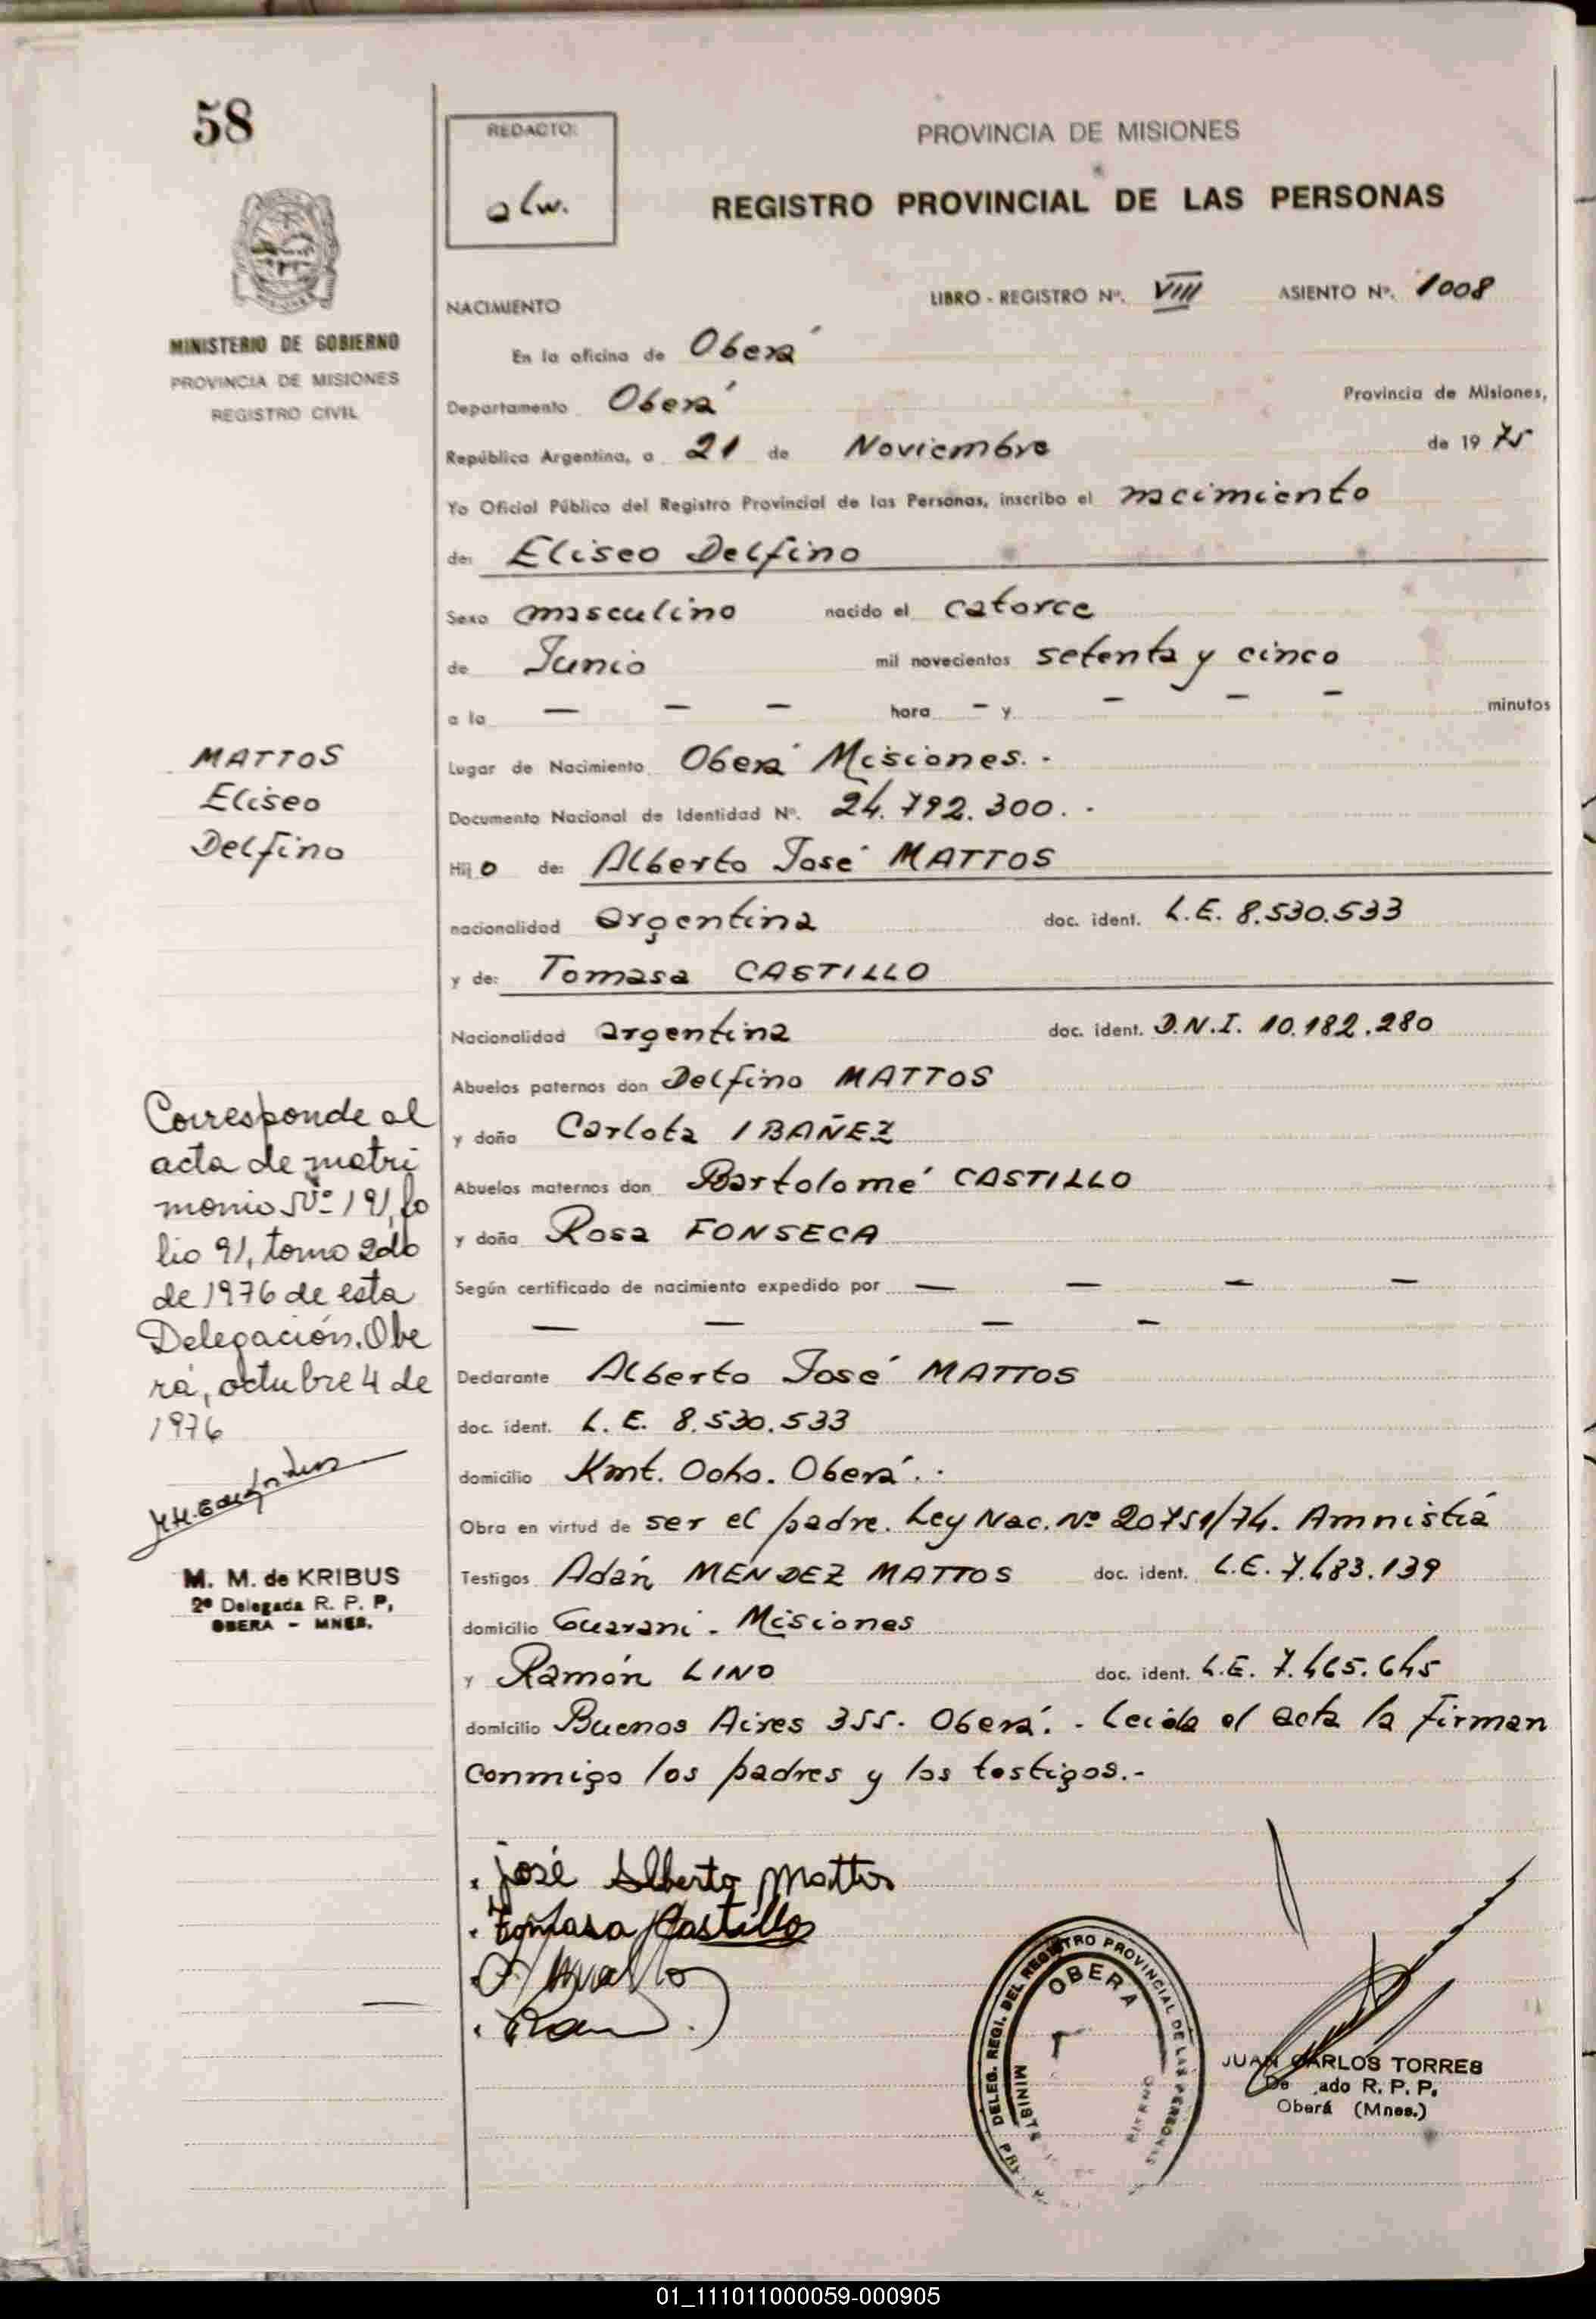 58
REDACTO:
alw.
PROVINCIA DE MISIONES
REGISTRO PROVINCIAL DE LAS PERSONAS
MINISTERIO DE GOBIERNO
PROVINCIA DE MISIONES
REGISTRO CIVIL
NACIMIENTO
LIBRO - REGISTRO Nº. VIII ASIENTO Nº. 1008
En la oficina de Oberá
Departamento Oberá Provincia de Misiones,
República Argentina, a 21 de Noviembre de 1975
Yo Oficial Público del Registro Provincial de las Personas, inscribo el nacimiento
de: Eliseo Delfino
Sexo masculino nacido el catorce
de Junio mil novecientos setenta y cinco
a la — — — hora - y — — — minutos
Lugar de Nacimiento Oberá Misiones. -
Documento Nacional de Identidad Nº. 24.792.300. -
Hijo de: Alberto José MATTOS
nacionalidad argentina doc. ident. L.E. 8.530.533
y de: Tomasa CASTILLO
Nacionalidad argentina doc. ident. D.N.I. 10.182.280
Abuelos paternos don Delfino MATTOS
y doña Carlota IBAÑEZ
Abuelos maternos don Bartolomé CASTILLO
y doña Rosa FONSECA
Según certificado de nacimiento expedido por — — — —
— — — —
Declarante Alberto José MATTOS
doc. ident. L. E. 8.530.533
domicilio Kmt. Ocho. Oberá. -
Obra en virtud de ser el padre. Ley Nac. Nº 20751/74. Amnistía
Testigos Adán MENDEZ MATTOS doc. ident. L.E. 7.483.139
domicilio Guaraní - Misiones
y Ramón LINO doc. ident. L.E. 7.465.645
domicilio Buenos Aires 355. Oberá. - Leida el acta la firman
conmigo los padres y los testigos.-
MATTOS
Eliseo
Delfino
Corresponde al
acta de matri
monio Nº 191, fo
lio 91, tomo 2do
de 1976 de esta
Delegación. Obe
rá, octubre 4 de
1976
M. M. de KRIBUS
2ª Delegada R. P. P,
OBERA - MNES.
José Alberto Mattos
Tomasa Castillo
DELEG. REGI. DEL REGISTRO PROVINCIAL DE LAS PERSONAS
OBERA
JUAN CARLOS TORRES
ado R. P. P.
Oberá (Mnes.)
01_111011000059-000905